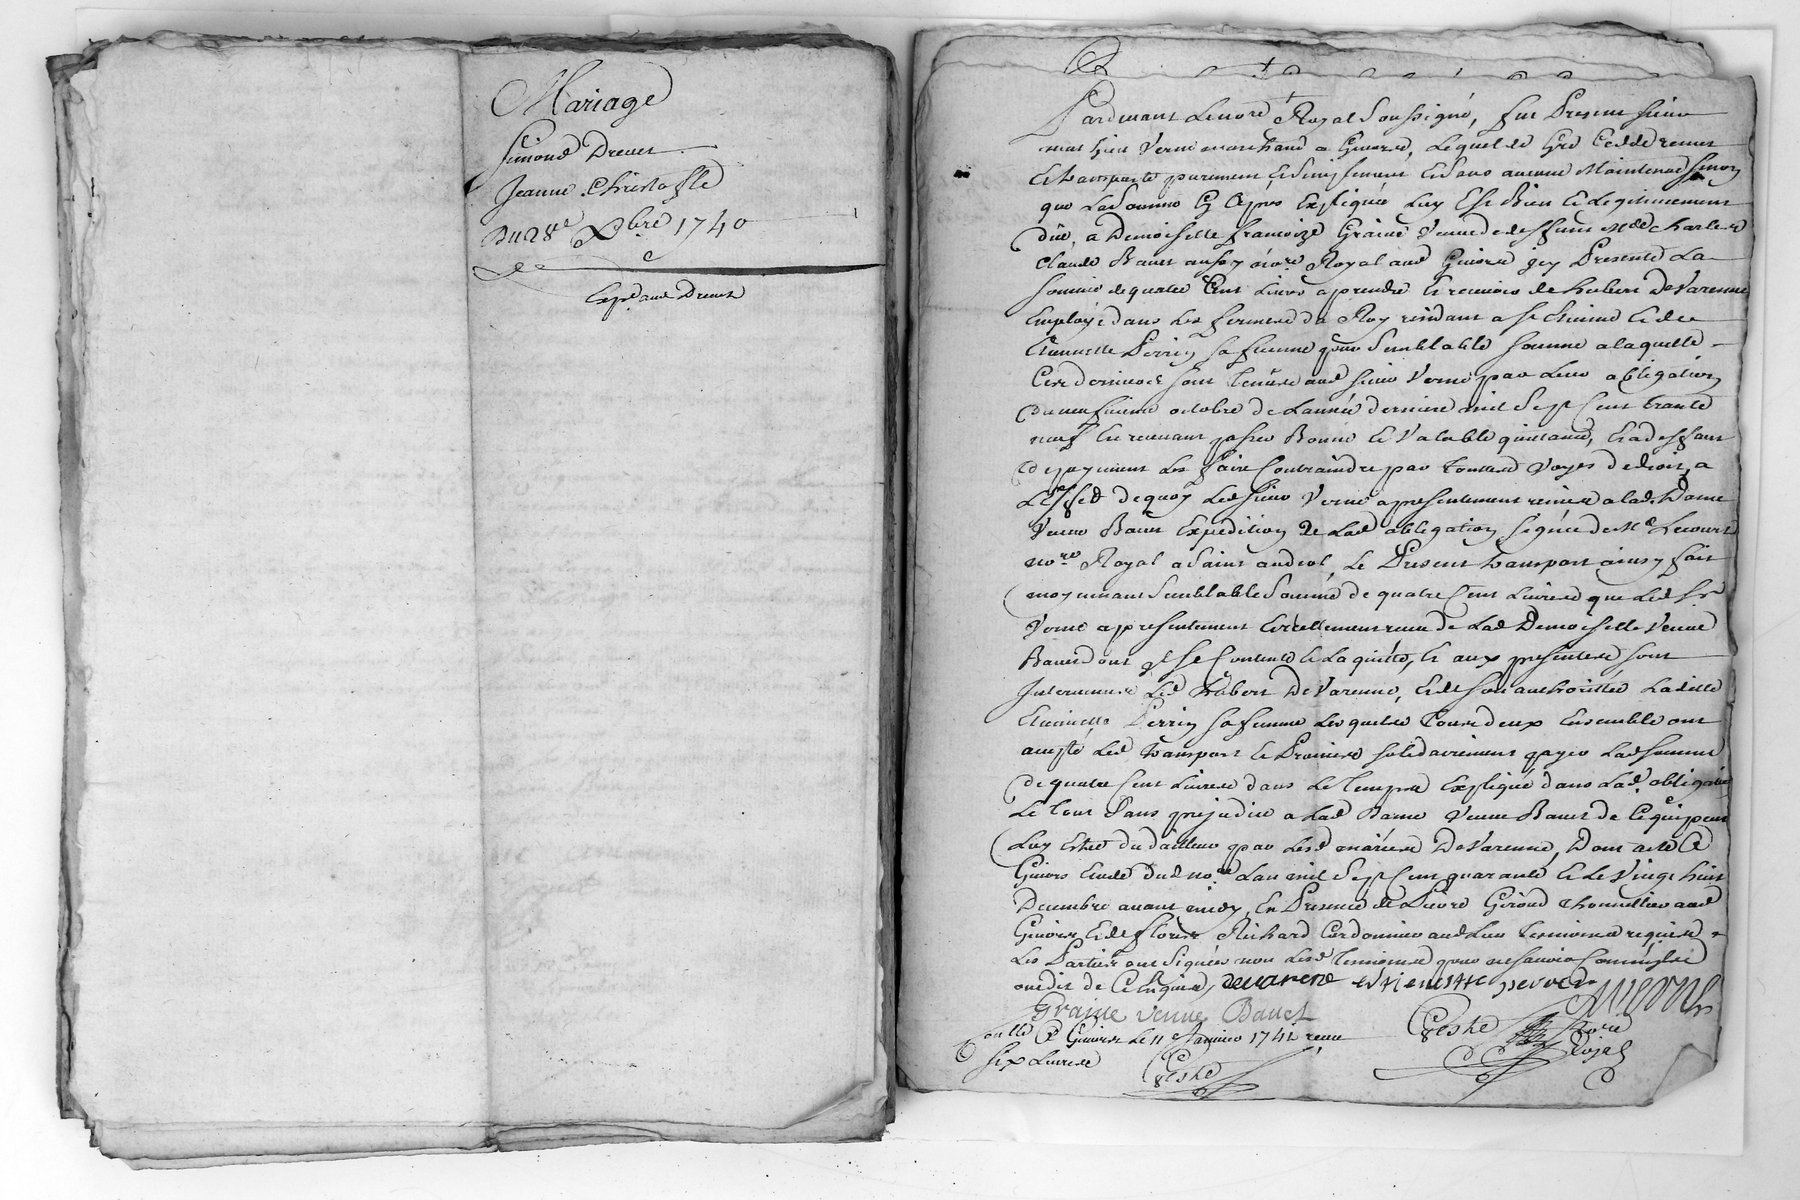 Mariage
Simond Drevet
Jeanne Christofle
Du 28e Xbre 1740
Expé aud Drevet
Pardevant Le no.re Royal Soussigné, fut Present sieur
mathieu Verne marchand a Givors, Lequel de Gré Cedde remet
et transporte purement et simplement et sans aucune Maintenue sinon
que La Somme Cy apres Expliquée Luy Est Bien et Legitimement
düe, a Demoiselle françoize Graine Veuve de deffunt Me Charles
Claude Bauet no.re Royal aud Givors icy Presente La
somme de quatre Cent Livres a prendre et recevoir de hubert De Varenne
Employé dans Les fermes du Roy residant a et de
Etiennette Perrin sa femme pour Semblable somme a laquelle
Ces derniers sont tenus aud sieur Verne par Leur obligation
du octobre de L'année derniere mil Sept Cent trante
neuf En recevant passer Bonne et Valable quittance, et a deffaut
de payement Les faire Contraindre par touttes Voyes de droit, a
L'effet de quoy Led sieur Verne a presentement remis a lad Dame
Veuve Bauet Expedition de Lad obligation signée de Me
no.re Royal a Saint andeol, Le Present transport ainsy fait
moyennant Semblable Somme de quatre Cent Livres que Led Sr
Verne a presentement et reellement receu de Lad Demoiselle Veuve
Bauet dont il se Contente et La quitte, et aux presentes sont
Intervenus Led hubert De Varenne, et de son authorittée Laditte
Etiennette Perrin sa femme Lesquels tous deux Ensemble ont
accepté Led transport et Promis solidairement payer Lad somme
de quatre Cent Livres dans Le temps Expliqué dans Lad obligation
Le tout Sans prejudice a Lad Dame Veuve Bauet de Ce qui peut
Luy Estre du d'ailleurs par Lesd mariés De Varenne, Dont acte a
Givors Etude dud no.re L'an mil Sept Cent quarante et Le Vingt huit
Decembre avant midy, En Presence de Pierre Giroud aud
Givors et de flory Richard Cordonnier aud Lieu temoins requis
Les Parties ont signées non Lesd temoins pour ne sçavoir Comme ils
ont dit de Ce Enquis, devarene etienette perret
Graine Veuve Bauet
Verne
Geshe no.re Royal
a Givors Le 11 Janvier 1741 receu
six Livres
Geshe